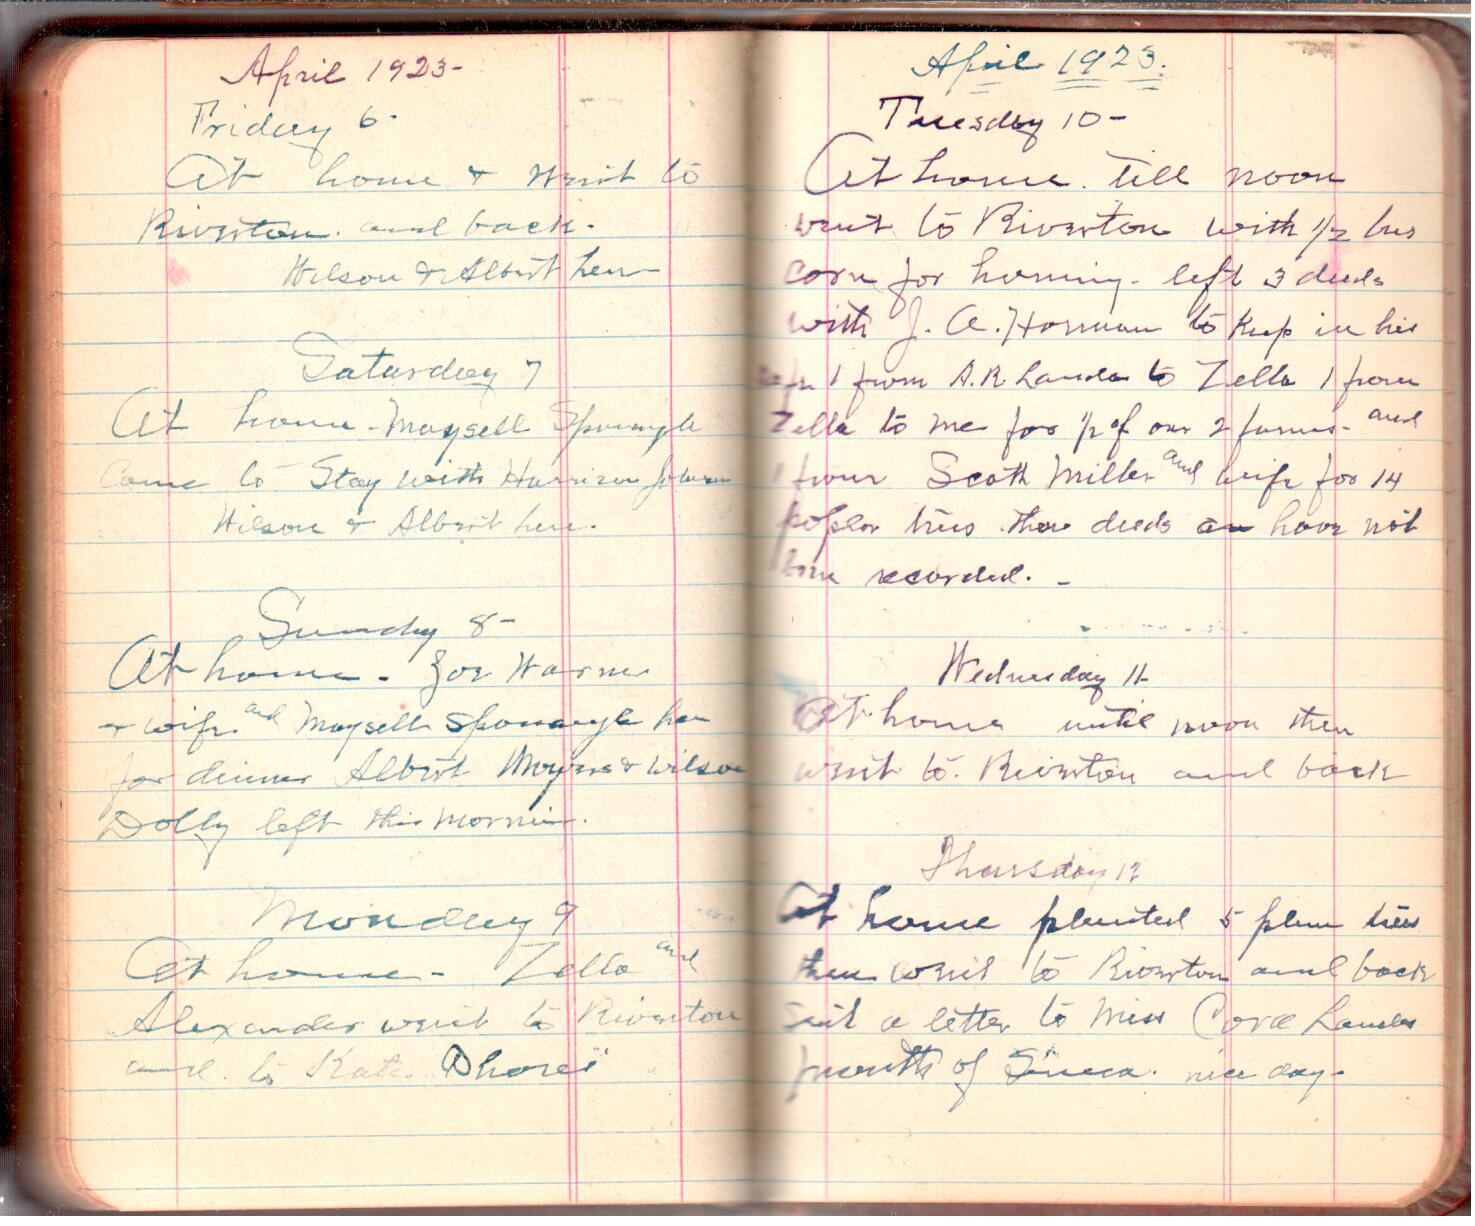 April 1923-
Friday 6-
At home & went to
Riverton. and back.
Wilson & Albert here
Saturday 7
At home - Maysell Sponaugle
Came to Stay with Harrison Johnson
Wilson & Albert here.
Sunday 8-
At home - Zoe Warner
& wife and Maysell Sponaugle here
for dinner Albert Moyers & Wilson
Dolly left this morning.
Monday 9
At home - Zella and
Alexander went to Riverton
and to Kate
April 1923.
Tuesday 10-
At home. till noon
went to Riverton with 1/2 bus
corn for hominy. left 3 deeds
with J. A. Harman to keep in his
1 from A.R. Landes to Zella 1 from
Zella to me for 1/2 of our 2 farms - and
1 from Scott Miller and wife for 14
poplar trees. these deeds have not
been recorded. -
Wednesday 11
At home until noon then
went to. Riverton and back
Thursday 12
At home planted 5 plum trees
then went to Riverton and back
Sent a letter to Miss Cora Landes
mouth of Seneca. nice day-